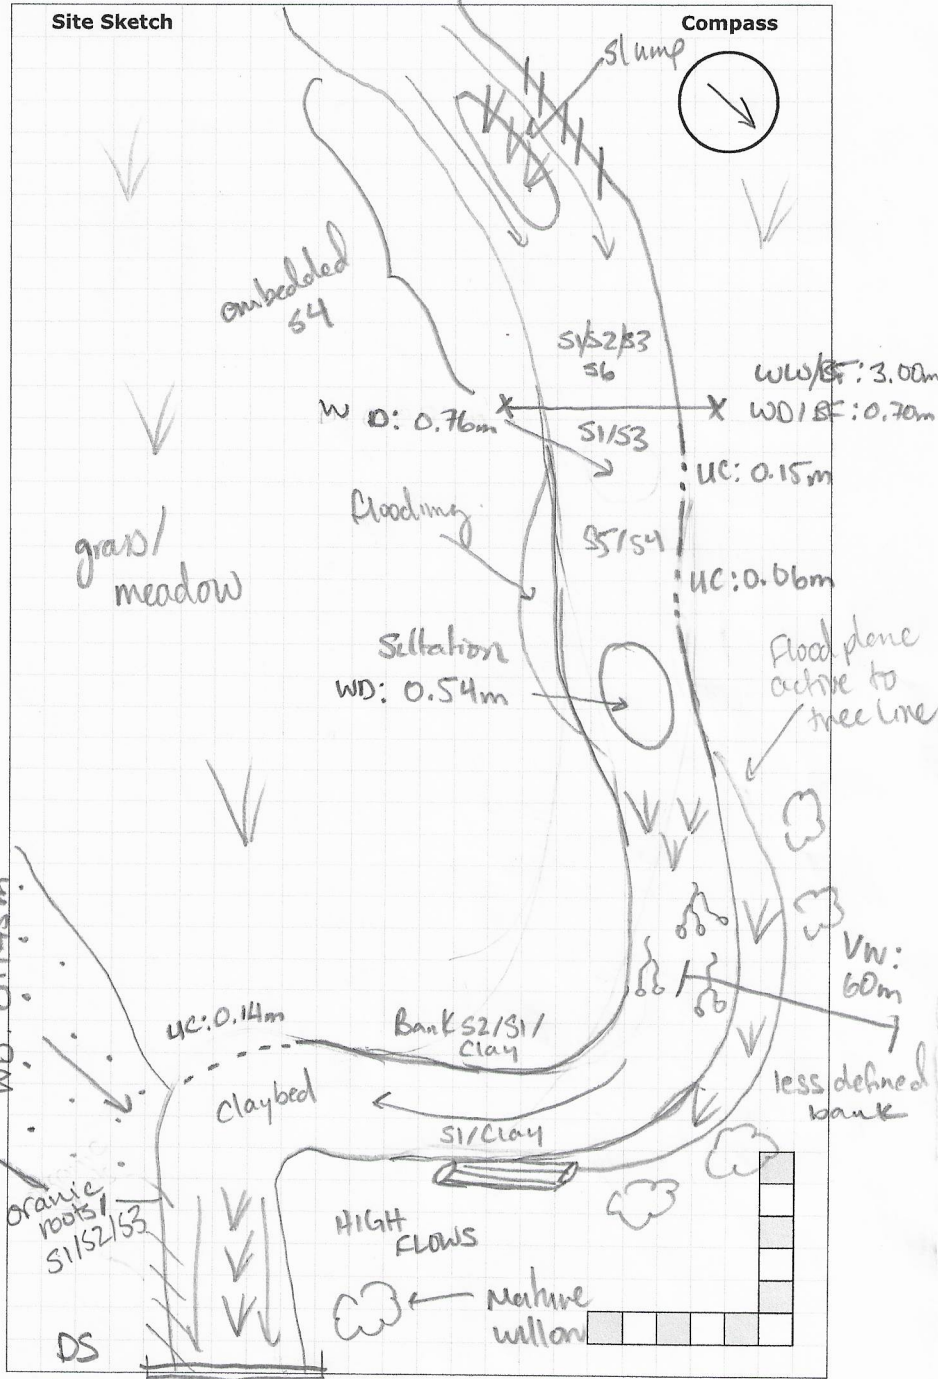 Site Sketch
Compass
slump
embedded
S4
S1/S2/S3
S6
WW/BF: 3.00m
WD/BF: 0.70m
W D: 0.76m
S1/S3
UC: 0.15m
flooding
S5/S4
grass/
meadow
UC: 0.06m
Siltation
WD: 0.54m
Flood plane
active to
tree line
VW:
60m
UC: 0.14m
Bank S2/S1/
Clay
Claybed
less defined
bank
S1/Clay
oranic
roots/
S1/S2/S3
HIGH
FLOWS
Mature
willow
DS